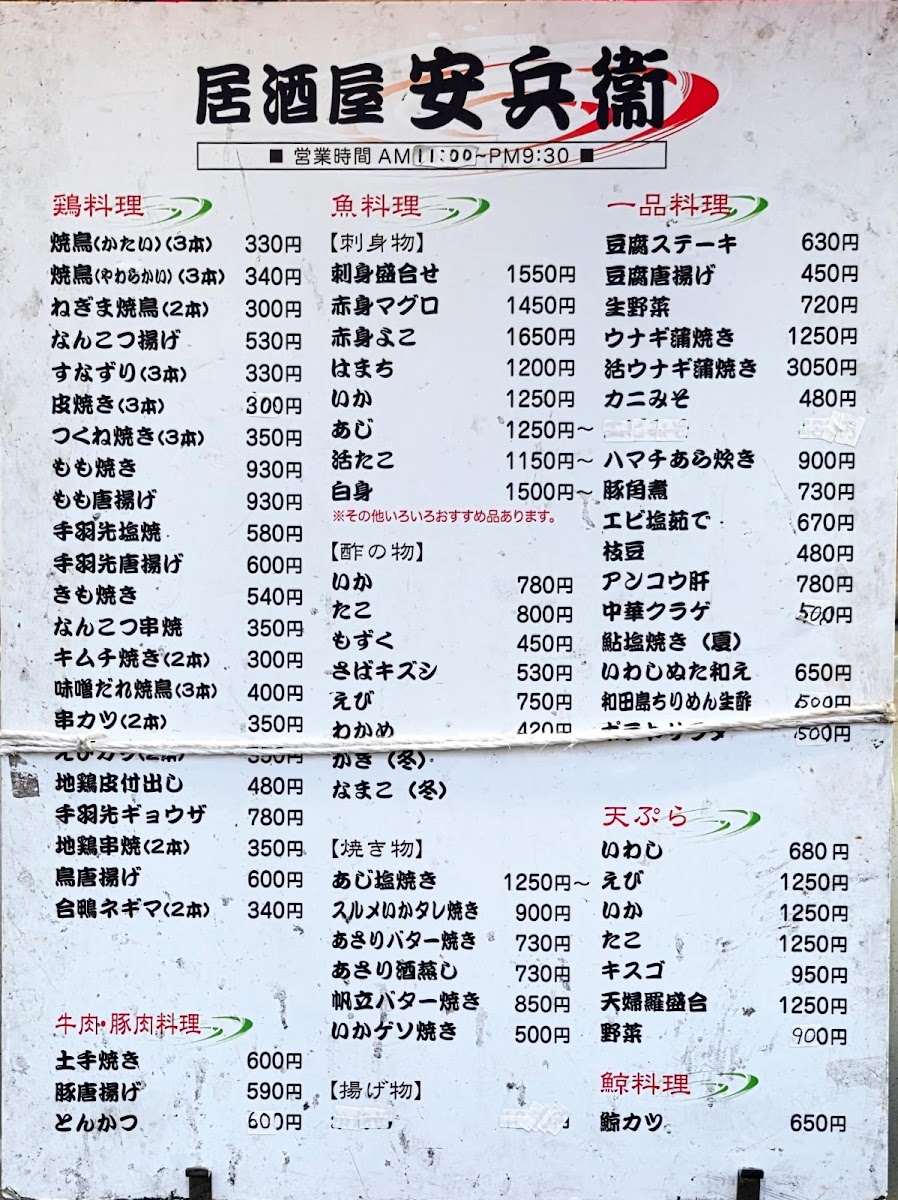 居酒屋 安兵衛
■ 営業時間 AM11:00~PM9:30 ■
鶏料理
焼鳥(かたい)(3本) 330円
焼鳥(やわらかい)(3本) 340円
ねぎま焼鳥(2本) 300円
なんこつ揚げ 530円
すなずり(3本) 330円
皮焼き(3本) 300円
つくね焼き(3本) 350円
もも焼き 930円
もも唐揚げ 930円
手羽先塩焼 580円
手羽先唐揚げ 600円
きも焼き 540円
なんこつ串焼 350円
キムチ焼き(2本) 300円
味噌だれ焼鳥(3本) 400円
串カツ(2本) 350円
えびカツ(2本) 350円
地鶏皮付出し 480円
手羽先ギョウザ 780円
地鶏串焼(2本) 350円
鳥唐揚げ 600円
合鴨ネギマ(2本) 340円
牛肉・豚肉料理
土手焼き 600円
豚唐揚げ 590円
とんかつ 600円
魚料理
【刺身物】
刺身盛合せ 1550円
赤身マグロ 1450円
赤身よこ 1650円
はまち 1200円
いか 1250円
あじ 1250円~
活たこ 1150円~
白身 1500円~
※その他いろいろおすすめ品あります。
【酢の物】
いか 780円
たこ 800円
もずく 450円
さばキズシ 530円
えび 750円
わかめ 420円
かき(冬)
なまこ(冬)
【焼き物】
あじ塩焼き 1250円~
スルメいかタレ焼き 900円
あさりバター焼き 730円
あさり酒蒸し 730円
帆立バター焼き 850円
いかゲソ焼き 500円
【揚げ物】
一品料理
豆腐ステーキ 630円
豆腐唐揚げ 450円
生野菜 720円
ウナギ蒲焼き 1250円
活ウナギ蒲焼き 3050円
カニみそ 480円
ハマチあら炊き 900円
豚角煮 730円
エビ塩茹で 670円
枝豆 480円
アンコウ肝 780円
中華クラゲ 500円
鮎塩焼き(夏)
いわしぬた和え 650円
和田島ちりめん生酢 500円
ポテトサラダ 500円
天ぷら
いわし 680円
えび 1250円
いか 1250円
たこ 1250円
キスゴ 950円
天婦羅盛合 1250円
野菜 900円
鯨料理
鯨カツ 650円